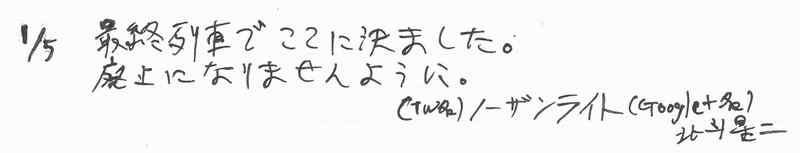 1/5 最終列車でここに決ました。
廃止になりませんように。
(TW名)ノーザンライト(Google+名)
北斗星二